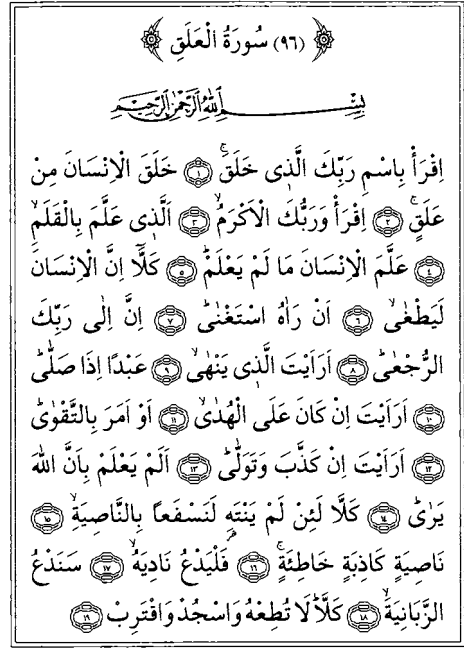 (٩٦) سُورَةُ الْعَلَقِ
بِسْمِ اللهِ الرَّحْمٰنِ الرَّحِيمِ
اِقْرَأْ بِاسْمِ رَبِّكَ الَّذٖى خَلَقَۚ ﴿١﴾ خَلَقَ الْاِنْسَانَ مِنْ
عَلَقٍۚ ﴿٢﴾ اِقْرَأْ وَرَبُّكَ الْاَكْرَمُۙ ﴿٣﴾ اَلَّذٖى عَلَّمَ بِالْقَلَمِۙ
﴿٤﴾ عَلَّمَ الْاِنْسَانَ مَا لَمْ يَعْلَمْؕ ﴿٥﴾ كَلَّٓا اِنَّ الْاِنْسَانَ
لَيَطْغٰىۙ ﴿٦﴾ اَنْ رَاٰهُ اسْتَغْنٰىؕ ﴿٧﴾ اِنَّ اِلٰى رَبِّكَ
الرُّجْعٰىؕ ﴿٨﴾ اَرَاَيْتَ الَّذٖى يَنْهٰىۙ ﴿٩﴾ عَبْدًا اِذَا صَلّٰىؕ
﴿١٠﴾ اَرَاَيْتَ اِنْ كَانَ عَلَى الْهُدٰىۙ ﴿١١﴾ اَوْ اَمَرَ بِالتَّقْوٰىؕ
﴿١٢﴾ اَرَاَيْتَ اِنْ كَذَّبَ وَتَوَلّٰىؕ ﴿١٣﴾ اَلَمْ يَعْلَمْ بِاَنَّ اللهَ
يَرٰىؕ ﴿١٤﴾ كَلَّا لَئِنْ لَمْ يَنْتَهِ لَنَسْفَعاً بِالنَّاصِيَةِۙ ﴿١٥﴾
نَاصِيَةٍ كَاذِبَةٍ خَاطِئَةٍۚ ﴿١٦﴾ فَلْيَدْعُ نَادِيَهُۙ ﴿١٧﴾ سَنَدْعُ
الزَّبَانِيَةَۙ ﴿١٨﴾ كَلَّاؕ لَا تُطِعْهُ وَاسْجُدْ وَاقْتَرِبْ ﴿١٩﴾